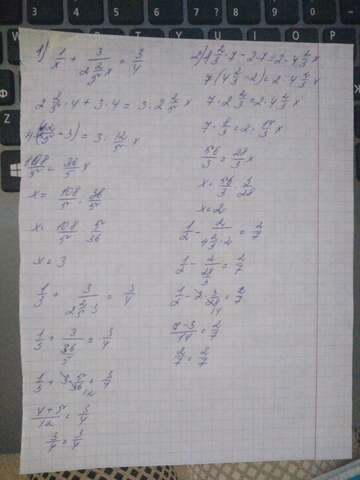 1) 1/x + 3/(2 2/5 x) = 3/4
2 2/5 · 4 + 3 · 4 = 3 · 2 2/5 x
4(12/5 + 3) = 3 · 12/5 x
108/5 = 36/5 x
x = 108/5 : 36/5
x = 108/5 · 5/36
x = 3
1/3 + 3/(2 2/5 · 3) = 3/4
1/3 + 3/(36/5) = 3/4
1/3 + 3 · 5/36 = 3/4
12
(4+5)/12 = 3/4
3/4 = 3/4
4 2/3 · 7 - 2 · 7 = 2 · 4 2/3 x
7(4 2/3 - 2) = 2 · 4 2/3 x
7 · 2 2/3 = 2 · 4 2/3 x
7 · 8/3 = 2 · 14/3 x
56/3 = 28/3 x
x = 56/3 · 3/28
x = 2
1/2 - 2/(4 2/3 · 2) = 2/7
1/2 - 2/(28/3) = 2/7
1/2 - 2 · 3/28 = 2/7
14
(7-3)/14 = 2/7
2/7 = 2/7